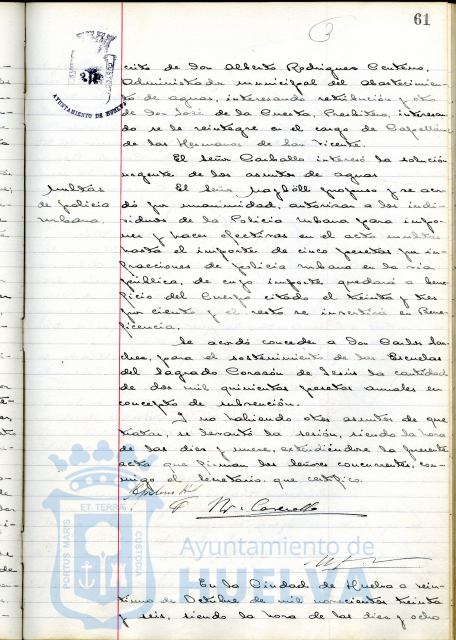 61
3
AYUNTAMIENTO DE HUELVA
crito de don Alberto Rodriguez Centeno,
Administrador municipal del Abastecimien-
to de aguas, interesando retribución y otro
de don José de la Cuesta, Presbítero, interesan-
do se le reintegre en el cargo de Capellán
de las Hermanas de San Vicente.
El Señor Carballo interesó la solución
urgente de los asuntos de aguas
Multas
de policia
urbana
El Señor propuso y se acor-
dó por unanimidad, autorizar a los indi-
viduos de la Policia urbana para impo-
ner y hacer efectivas en el acto multas
hasta el importe de cinco pesetas por in-
fracciones de policia urbana en la via
pública, de cuyo importe quedará a bene-
ficio del Cuerpo citado el treinta y tres
por ciento y el resto se invertirá en Bene-
ficencia.
Se acordó conceder a don Carlos Sán-
chez, para el sostenimiento de las Escuelas
del Sagrado Corazón de Jesús la cantidad
de dos mil quinientas pesetas anuales en
concepto de subvención.
Y no habiendo otros asuntos de que
tratar, se levantó la sesión, siendo la hora
de las diez y nueve, extendiéndose la presente
acta que firman los señores concurrentes, con-
migo el Secretario que certifico.
PORTUS MARIS ET TERRAE CUSTODIA
Ayuntamiento de
HUELVA
En la Ciudad de Huelva a vein-
tiuno de Octubre de mil novecientos treinta
y seis, siendo la hora de las diez y ocho